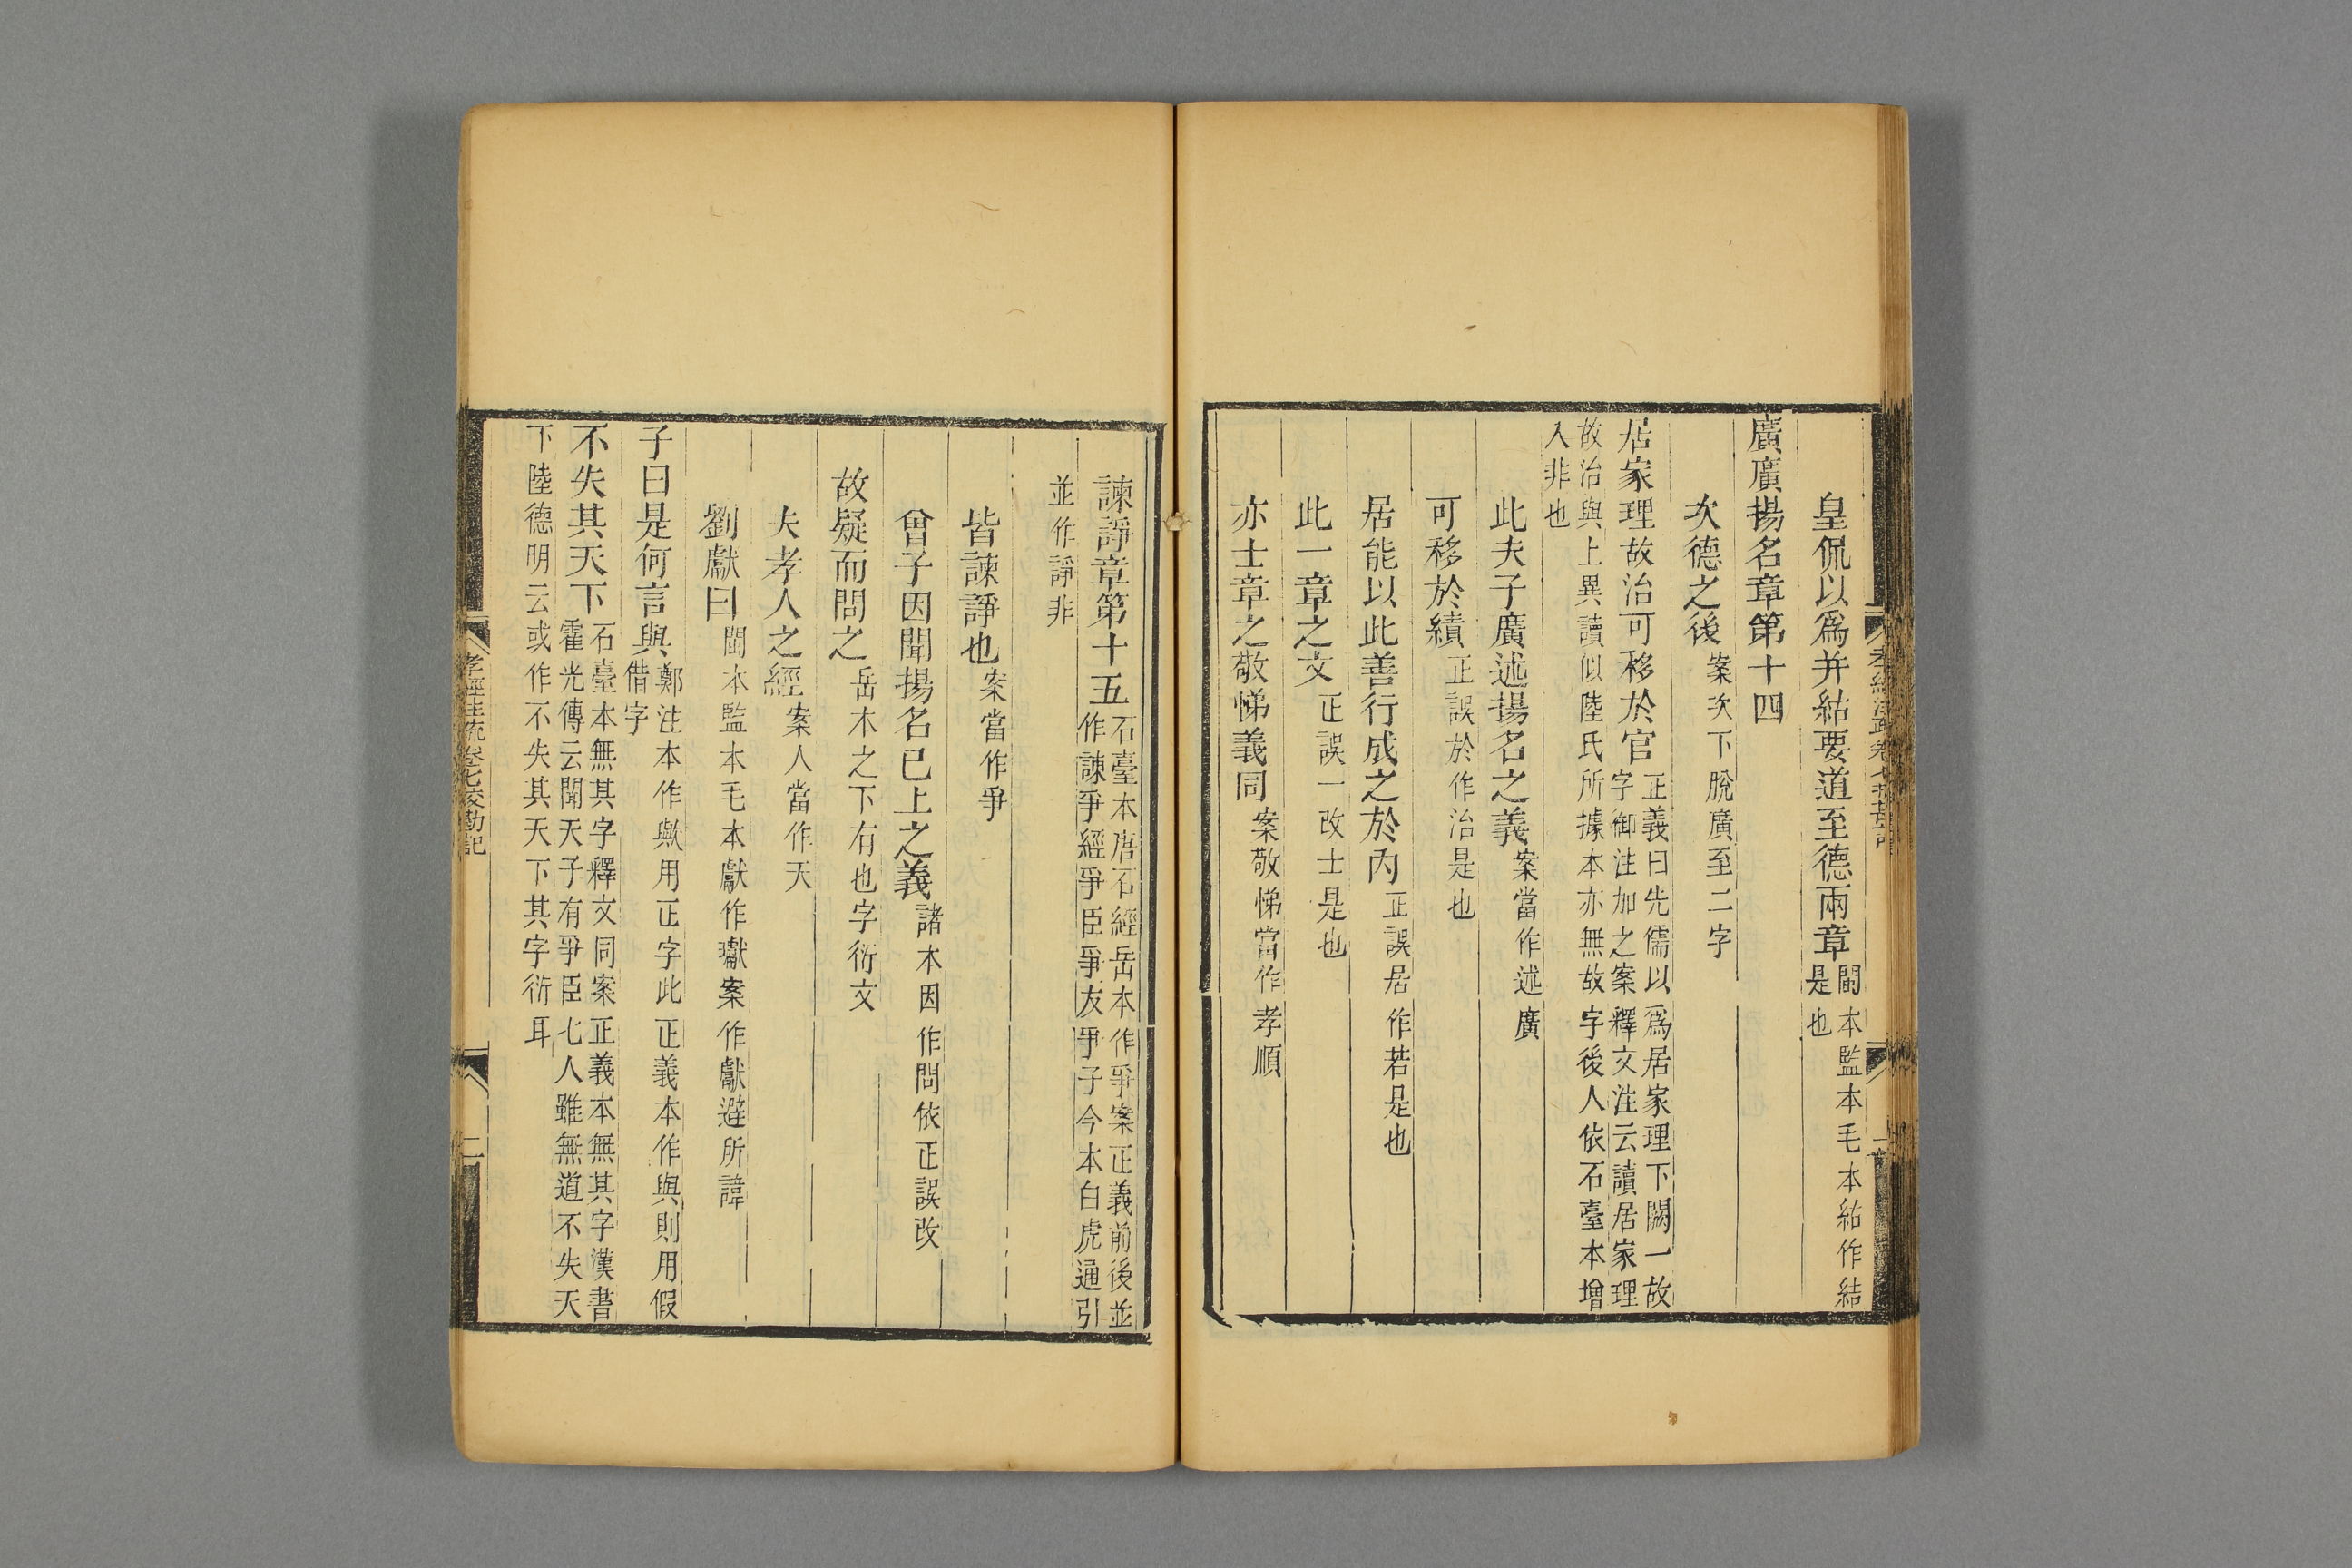 皇侃以爲并結要道至德兩章閩本監本毛本結作結是也
廣廣揚名章第十四
次德之後案次下脫廣至二字
居家理故治可移於官正義曰先儒以爲居家理下闕一故字御注加之案釋文注云讀居家理
故治與上異讀似陸氏所據本亦無故字後人依石臺本增入非也
此夫子廣述揚名之義案當作述廣
可移於績正誤於作治是也
居能以此善行成之於內正誤居作若是也
此一章之文正誤一改士是也
亦士章之敬悌義同案敬悌當作孝順
諫諍章第十五石臺本唐石經岳本作爭案正義前後並作諫爭經爭臣爭友爭子今本白虎通引
並作諍非
皆諫諍也案當作爭
曾子因聞揚名已上之義諸本因作問依正誤改
故疑而問之岳本之下有也字衍文
夫孝人之經案人當作天
劉獻曰閩本監本毛本獻作瓛案作獻避所諱
子曰是何言與鄭注本作歟用正字此正義本作與則用假借字
不失其天下石臺本無其字釋文同案正義本無其字漢書霍光傳云聞天子有爭臣七人雖無道不失天
下陸德明云或作不失其天下其字衍耳
孝經注疏卷七挍勘記
二